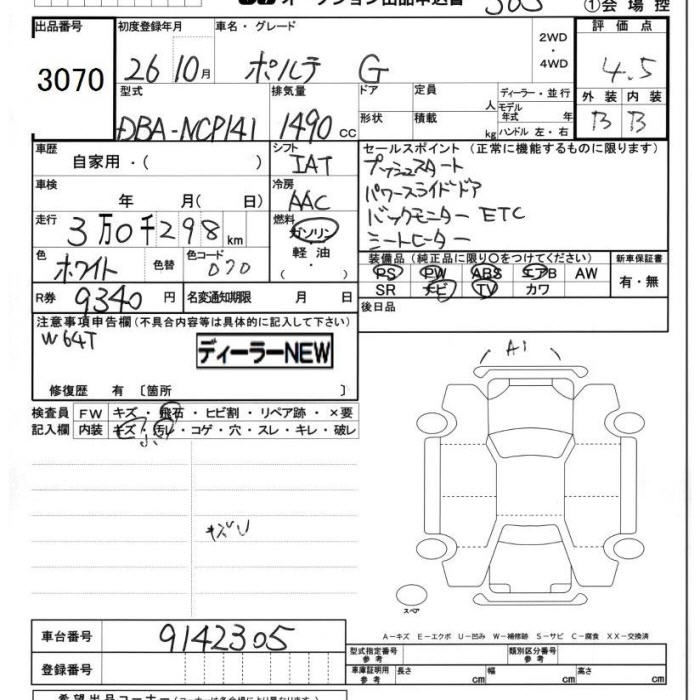 オークション出品申込書 ①会場控
出品番号 初度登録年月 車名・グレード 2WD・4WD 評価点
3070 26 10月 ポルテ G 4.5
型式 排気量 ドア 定員 人 ディーラー・並行 外装 内装
DBA-NCP141 1490 cc 形状 積載 kg モデル年式 年 ハンドル 左・右 B B
車歴 自家用・( ) シフト IAT セールスポイント (正常に機能するものに限ります)
プッシュスタート
車検 年 月( 日) 冷房 AAC パワースライドドア
走行 3万0千298km 燃料 ガソリン 軽油 ・( ) バックモニター ETC
シートヒーター
色 ホワイト 色替 色コード 070 装備品 (純正品に限り○をつけてください) 新車保証書
PS PW ABS エアB AW 有・無
SR ナビ TV カワ
R券 9340円 名変通知期限 月 日 後日品
注意事項申告欄(不具合内容等は具体的に記入して下さい)
W64T
ディーラーNEW
A1
修復歴 有 〔箇所 〕
検査員 FW キズ・飛石・ヒビ割・リペア跡・×要
記入欄 内装 キズ・汚レ・コゲ・穴・スレ・キレ・破レ
小
キズU
スペア
車台番号 9142305 A-キズ E-エクボ U-凹み W-補修跡 S-サビ C-腐食 XX-交換済
型式指定番号 参考 類別区分番号 参考
登録番号 車庫証明用 参考 長さ cm 幅 cm 高さ cm
希望出品コーナー